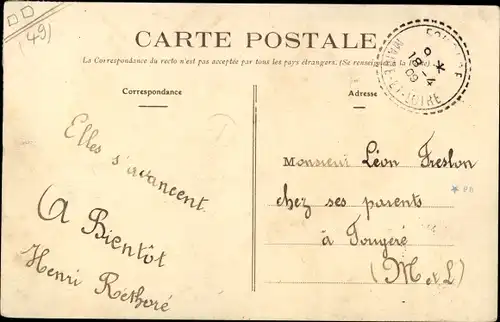 (49)
CARTE POSTALE
La Correspondance du recto n'est pas acceptée par tous les pays étrangers. (Se renseigner à la Poste).
Correspondance
Adresse
MAINE-ET-LOIRE
18-4
09
Elles s'avancent
A Bientôt
Henri Réthoré
Monsieur Léon Freslon
chez ses parents
à Fougeré
(M et L)